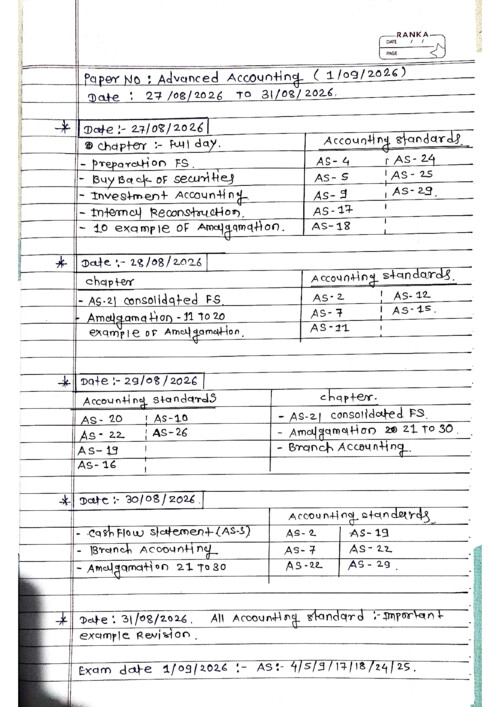 RANKA
DATE / /
PAGE
Paper No : Advanced Accounting (1/09/2026)
Date : 27/08/2026 To 31/08/2026.
* Date :- 27/08/2026
chapter :- Full day.
- Preparation FS.
- Buy Back of securities
- Investment Accounting
- Internal Reconstruction.
- 10 example of Amalgamation.
Accounting standards
AS-4 AS-24
AS-5 AS-25
AS-9 AS-29.
AS-17
AS-18
* Date :- 28/08/2026
chapter
- AS-21 consolidated FS.
- Amalgamation - 11 To 20
example of Amalgamation.
Accounting standards.
AS-2 AS-12
AS-7 AS-15.
AS-11
* Date :- 29/08/2026
Accounting standards
AS-20 AS-10
AS-22 AS-26
AS-19
AS-16
chapter.
- AS-21 consolidated FS.
- Amalgamation 21 To 30.
- Branch Accounting.
* Date :- 30/08/2026.
- cashflow statement (AS-3)
- Branch Accounting
- Amalgamation 21 To 30
Accounting standards
AS-2 AS-19
AS-7 AS-22
AS-22 AS-29.
* Date : 31/08/2026. All Accounting standard :- Important
example Revision.
Exam date 1/09/2026 :- AS:- 4/5/9/17/18/24/25.